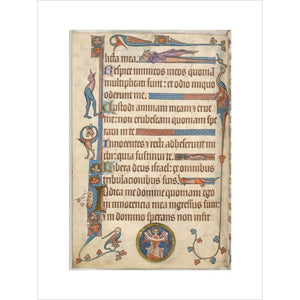 licta mea.
Respice inimicos meos quoniā
multiplicati sunt: et odio iniquo
oderunt me.
Custodi animam meam et erue
me: non erubescam quoniam spe
raui in te
Innocentes et recti adheserunt mi
chi: quia sustinui te.
Libera deus israel: ex omnibus
tribulacionibus suis.
Iudica me domine quoniam ego
in innocencia mea ingressus sum:
in domino sperans non infir